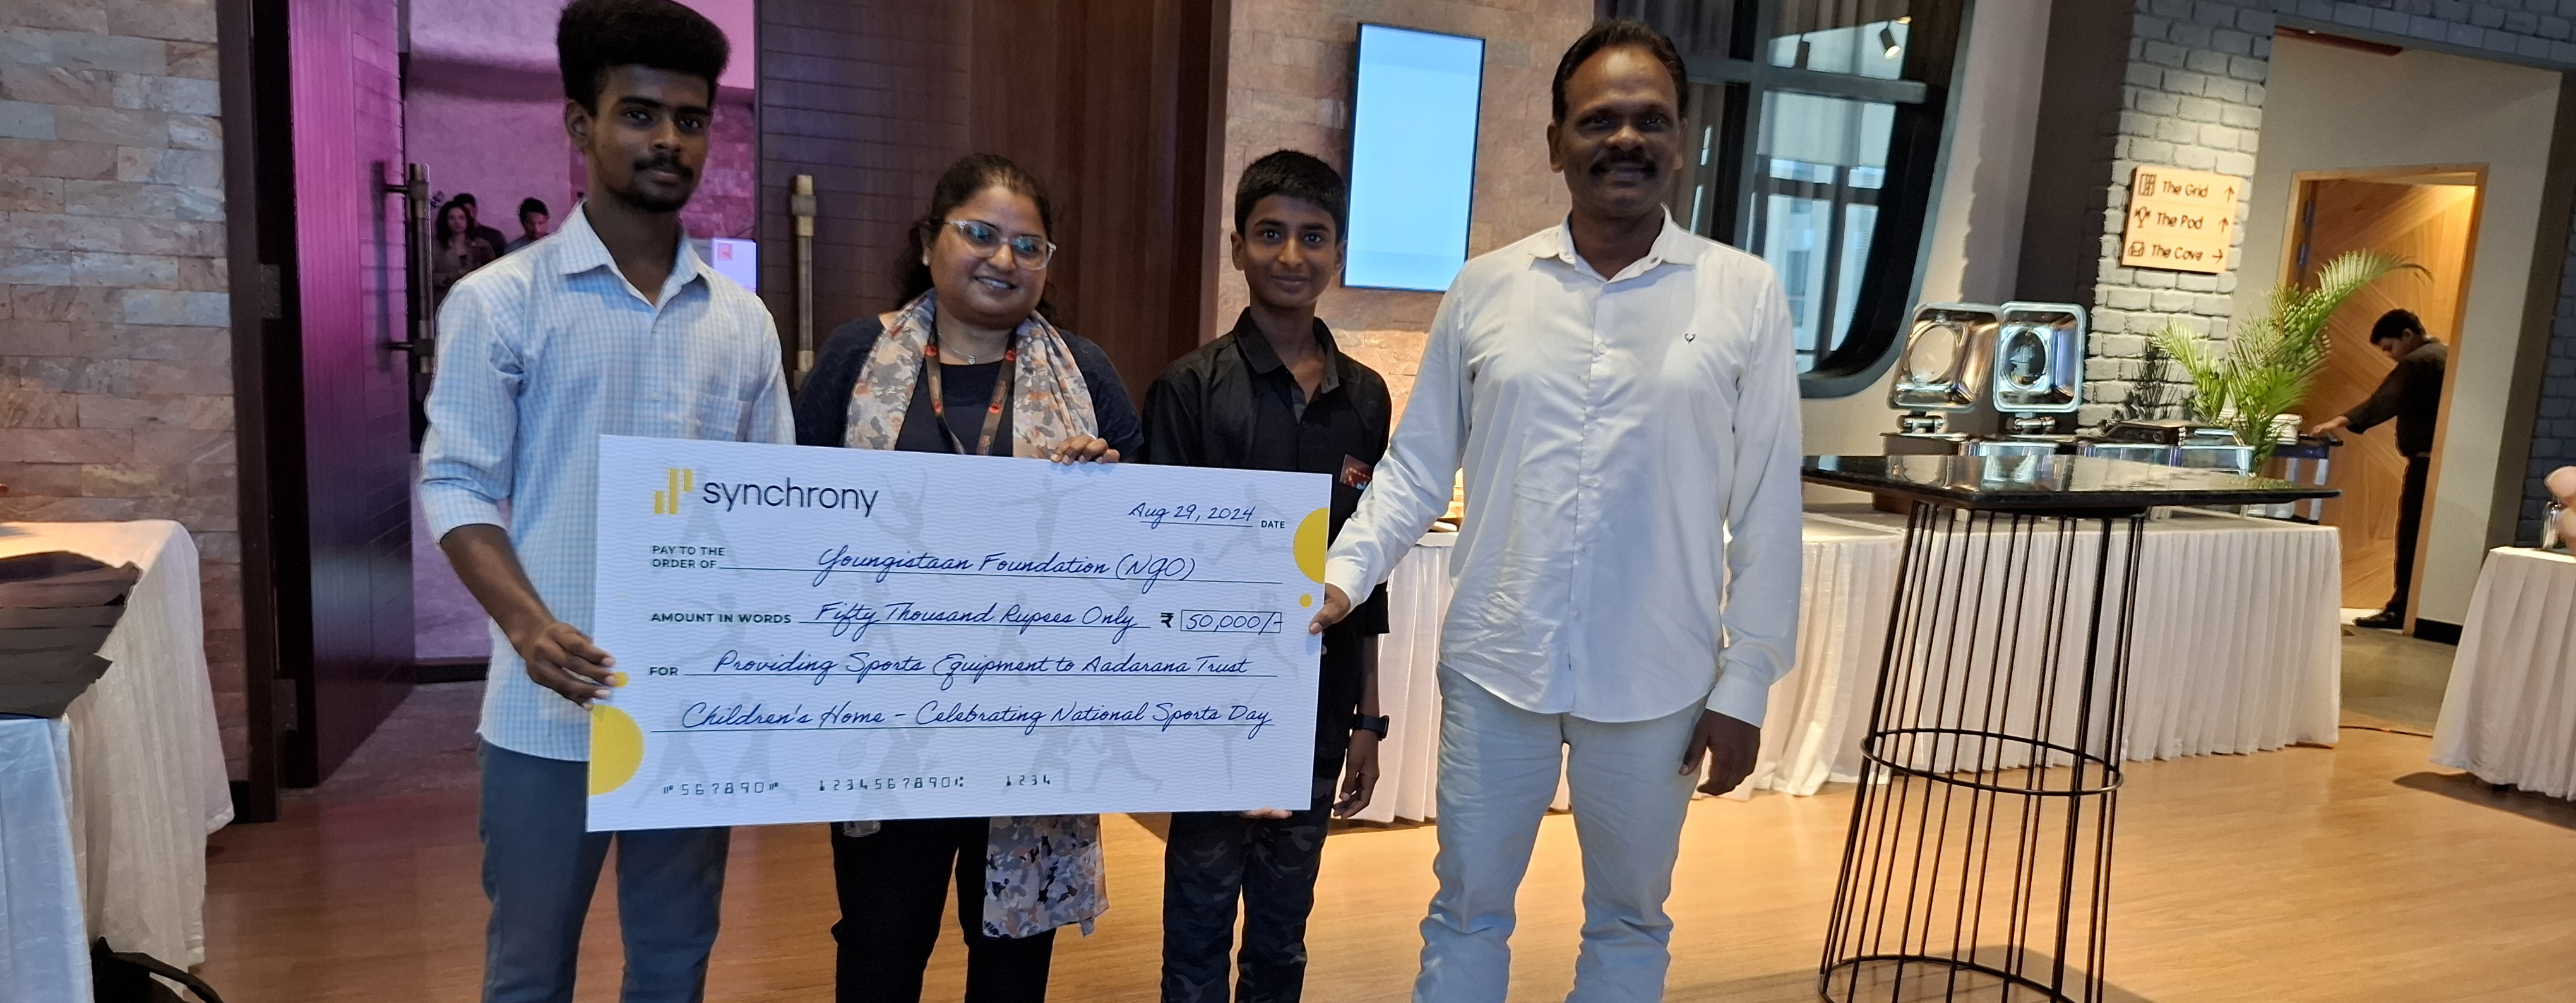 synchrony
Aug 29, 2024 DATE
PAY TO THE
ORDER OF Youngistaan Foundation (NGO)
AMOUNT IN WORDS Fifty Thousand Rupees Only ₹ 50,000/-
FOR Providing Sports Equipment to Aadarana Trust
Children's Home - Celebrating National Sports Day
⑈567890⑈ 1234567890⑆ 1234
The Grid ↑
The Pod ↑
The Cove →